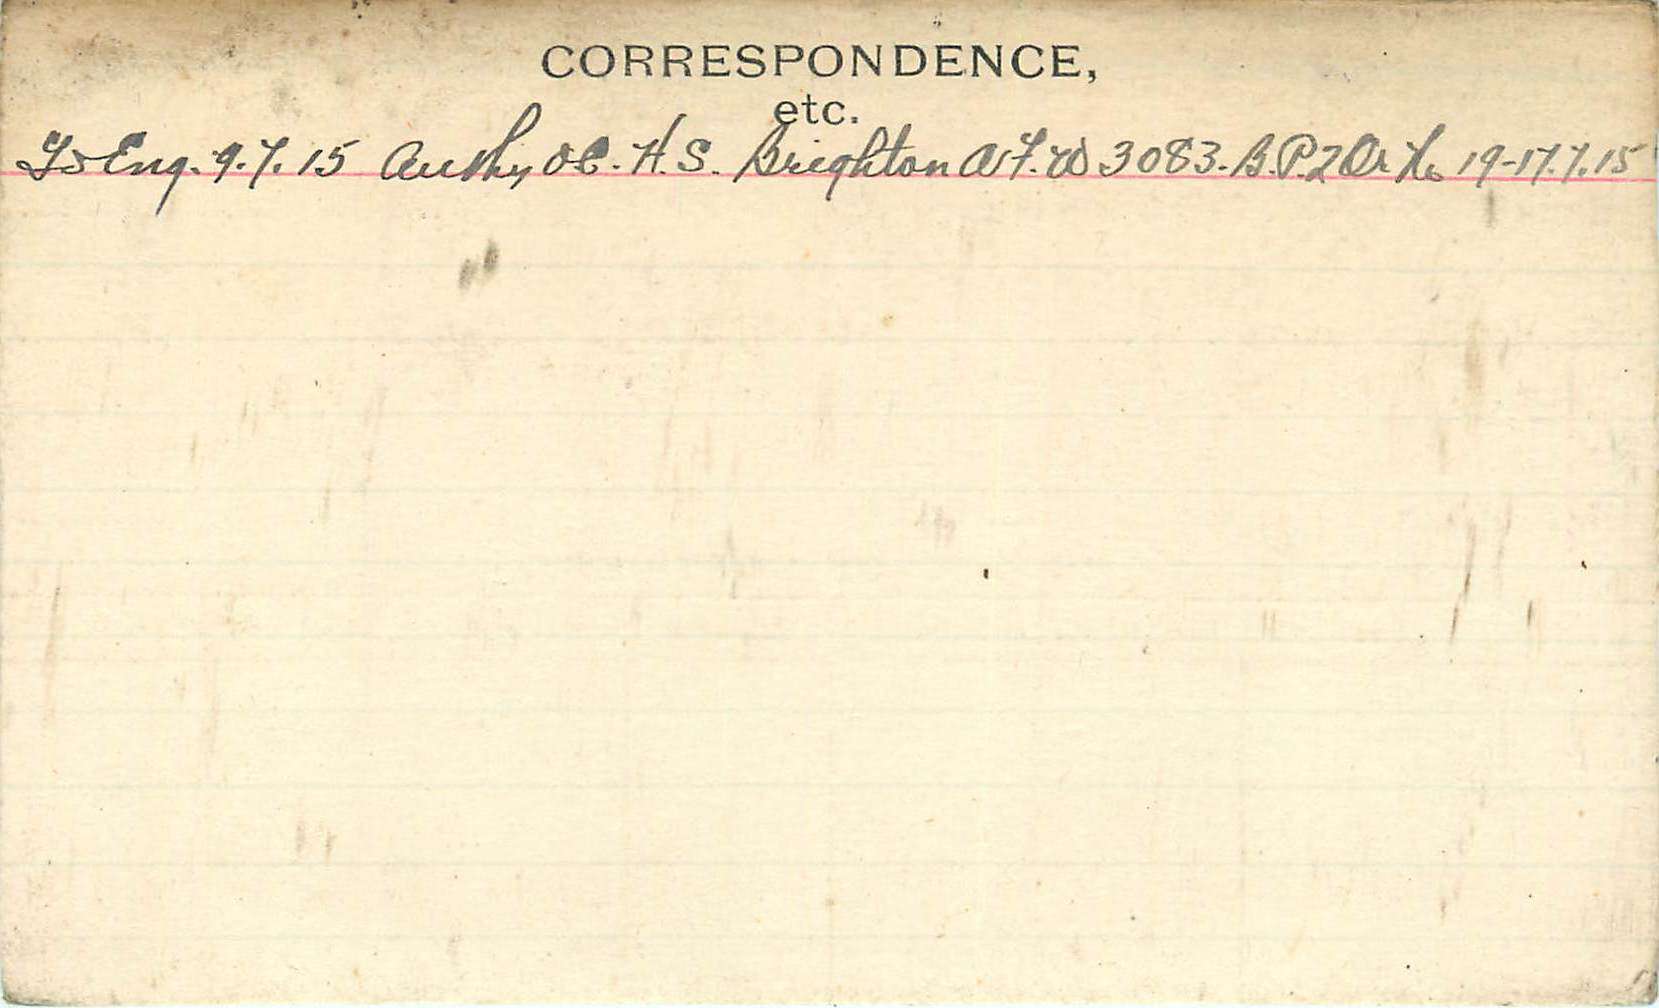 CORRESPONDENCE,
etc.
To Eng. 9.7.15 Authy OC. H.S. Brighton A.F.W 3083. B.P.2 Or No 19-17.7.15